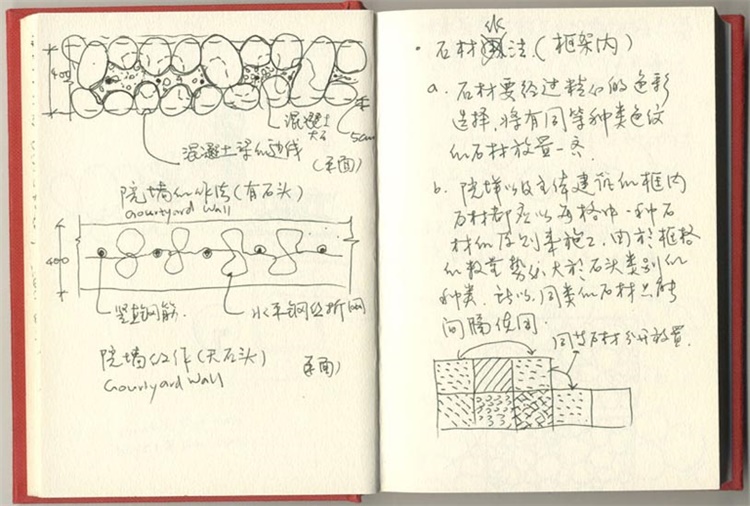 400
混凝土
大石
5cm
混凝土梁的边线
(平面)
院墙的作法(有石头)
Courtyard Wall
400
竖直钢筋
水平钢丝折网
院墙的作(大石头)
(平面)
Courtyard Wall
· 石材 法.(框架内)
a. 石材要经过精细的色彩
选择,将有同等种类色纹
的石材放置一齐.
b. 院墙以及主体建筑的框内
石材都应以每格中一种石
材的原则来施工,由於框格
的数量势必大於石头类别的
种类.所以,同类的石材只能
间隔使用.
同等石材分开放置.